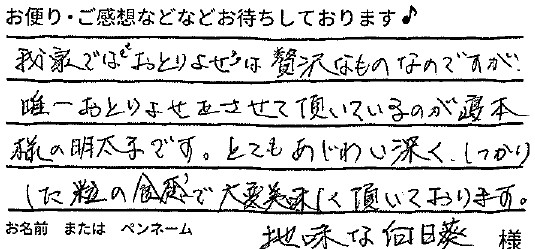 お便り・ご感想などなどお待ちしております♪
我家では“おとりよせ”は贅沢なものなのですが、
唯一おとりよせをさせて頂いているのが寝本
様の明太子です。とてもあじわい深く、しっかり
した粒の食感で大変美味しく頂いております。
お名前 または ペンネーム 地味な向日葵 様